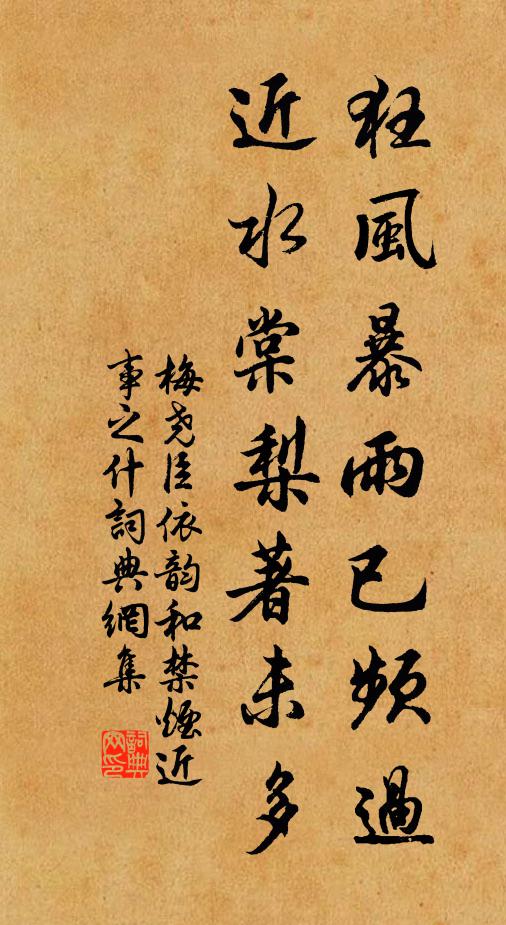 狂風暴雨已頻過
近水棠梨著未多
梅尧臣依韵和禁煙近
事之什詞典網集
詞典
网印